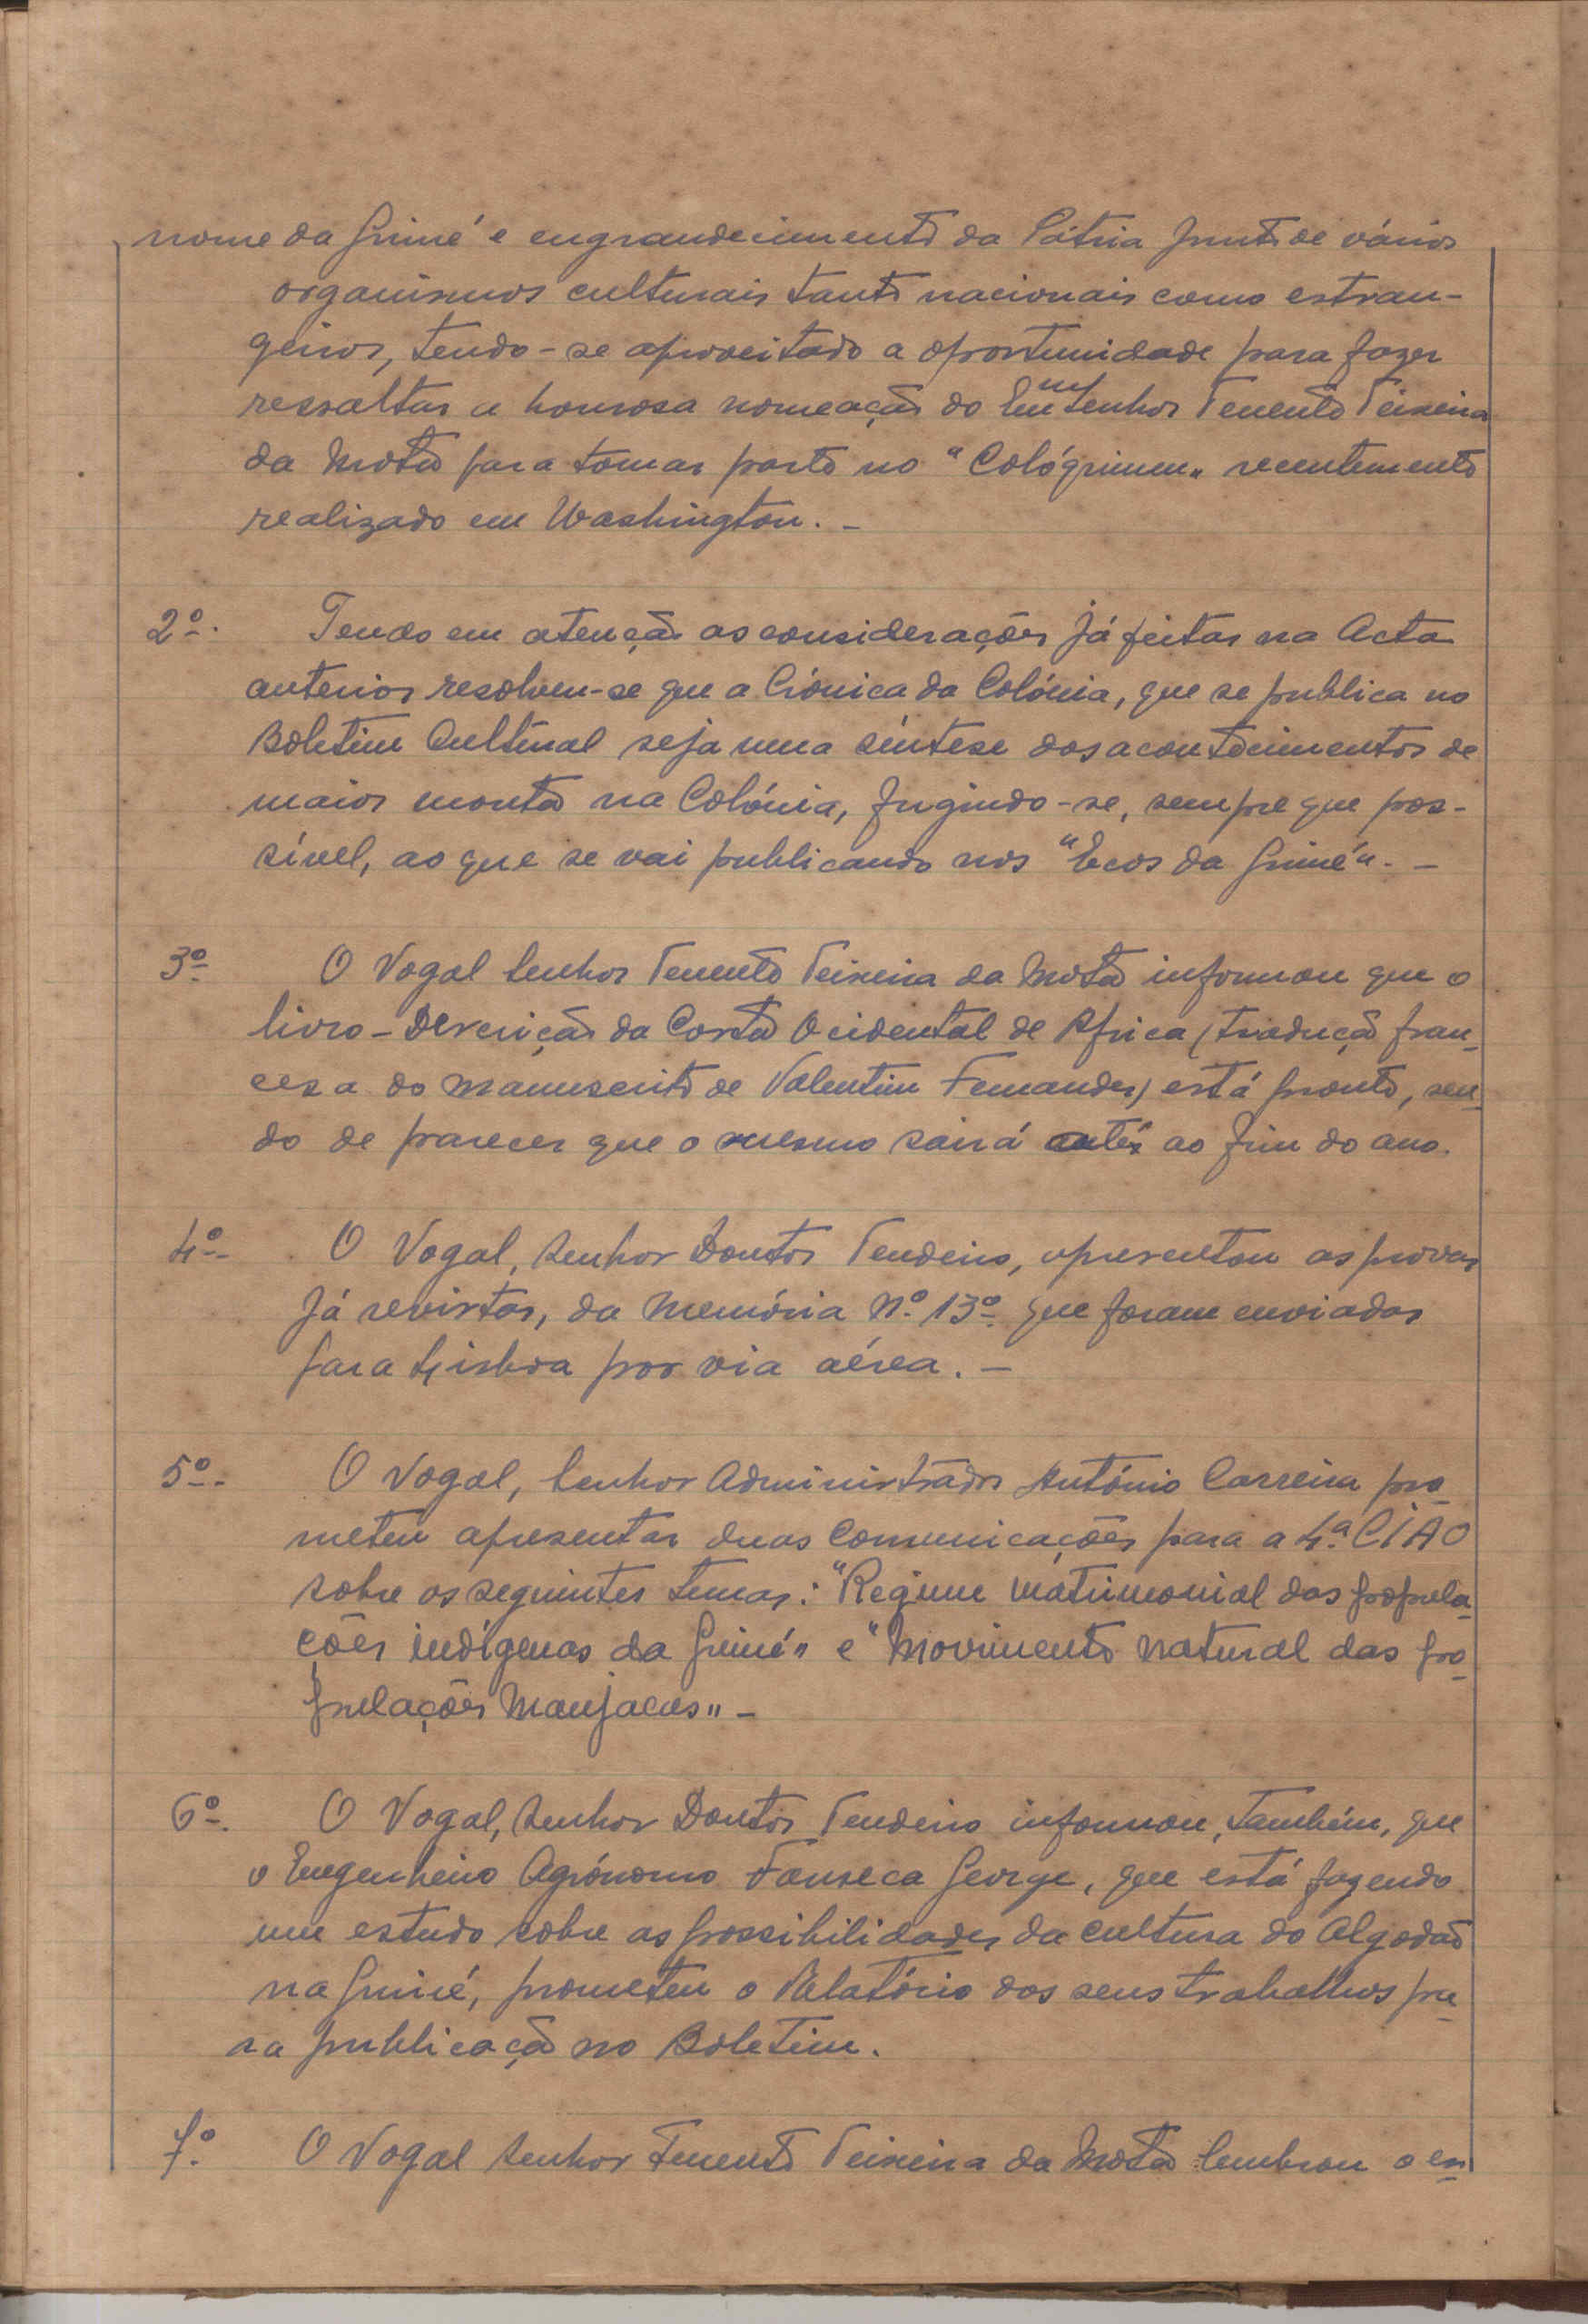 nome da Guiné e engrandecimento da Pátria junto de vários
organismos culturais tanto nacionais como estran-
geiros, tendo-se aproveitado a oportunidade para fazer
ressaltar a honrosa nomeação do Exmº Senhor Tenente Teixeira
da Mota para tomar parte no "Colóquium" recentemente
realizado em Washington. -
2º. Tendo em atenção as considerações já feitas na Acta
anterior resolveu-se que a Crónica da Colónia, que se publica no
Boletim Cultural seja uma síntese dos acontecimentos de
maior monta na Colónia, fugindo-se, sempre que pos-
sível, ao que se vai publicando nos "Ecos da Guiné". -
3º O Vogal Senhor Tenente Teixeira da Mota informou que o
livro - Descrição da Costa Ocidental de Africa (tradução fran-
cesa do manuscrito de Valentim Fernandes) está pronto, sen-
do de parecer que o mesmo sairá até ao fim do ano.
4º- O Vogal, Senhor Doutor Tendeiro, apresentou as provas
já revistas, da Memória Nº 13º que foram enviadas
para Lisboa por via aérea. -
5º- O Vogal, Senhor Administrador António Carreira pro-
meteu apresentar duas comunicações para a 4ª CIAO
sobre os seguintes temas: "Regime matrimonial das popula-
ções indígenas da Guiné" e "Movimento natural das po-
pulações Manjacas" -
6º. O Vogal, Senhor Doutor Tendeiro informou, também, que
o Engenheiro Agrónomo Fonseca George, que está fazendo
um estudo sobre as possibilidades da cultura do Algodão
na Guiné, prometeu o Relatório dos seus trabalhos pa-
ra publicação no Boletim.
7º. O Vogal Senhor Tenente Teixeira da Mota lembrou o en-